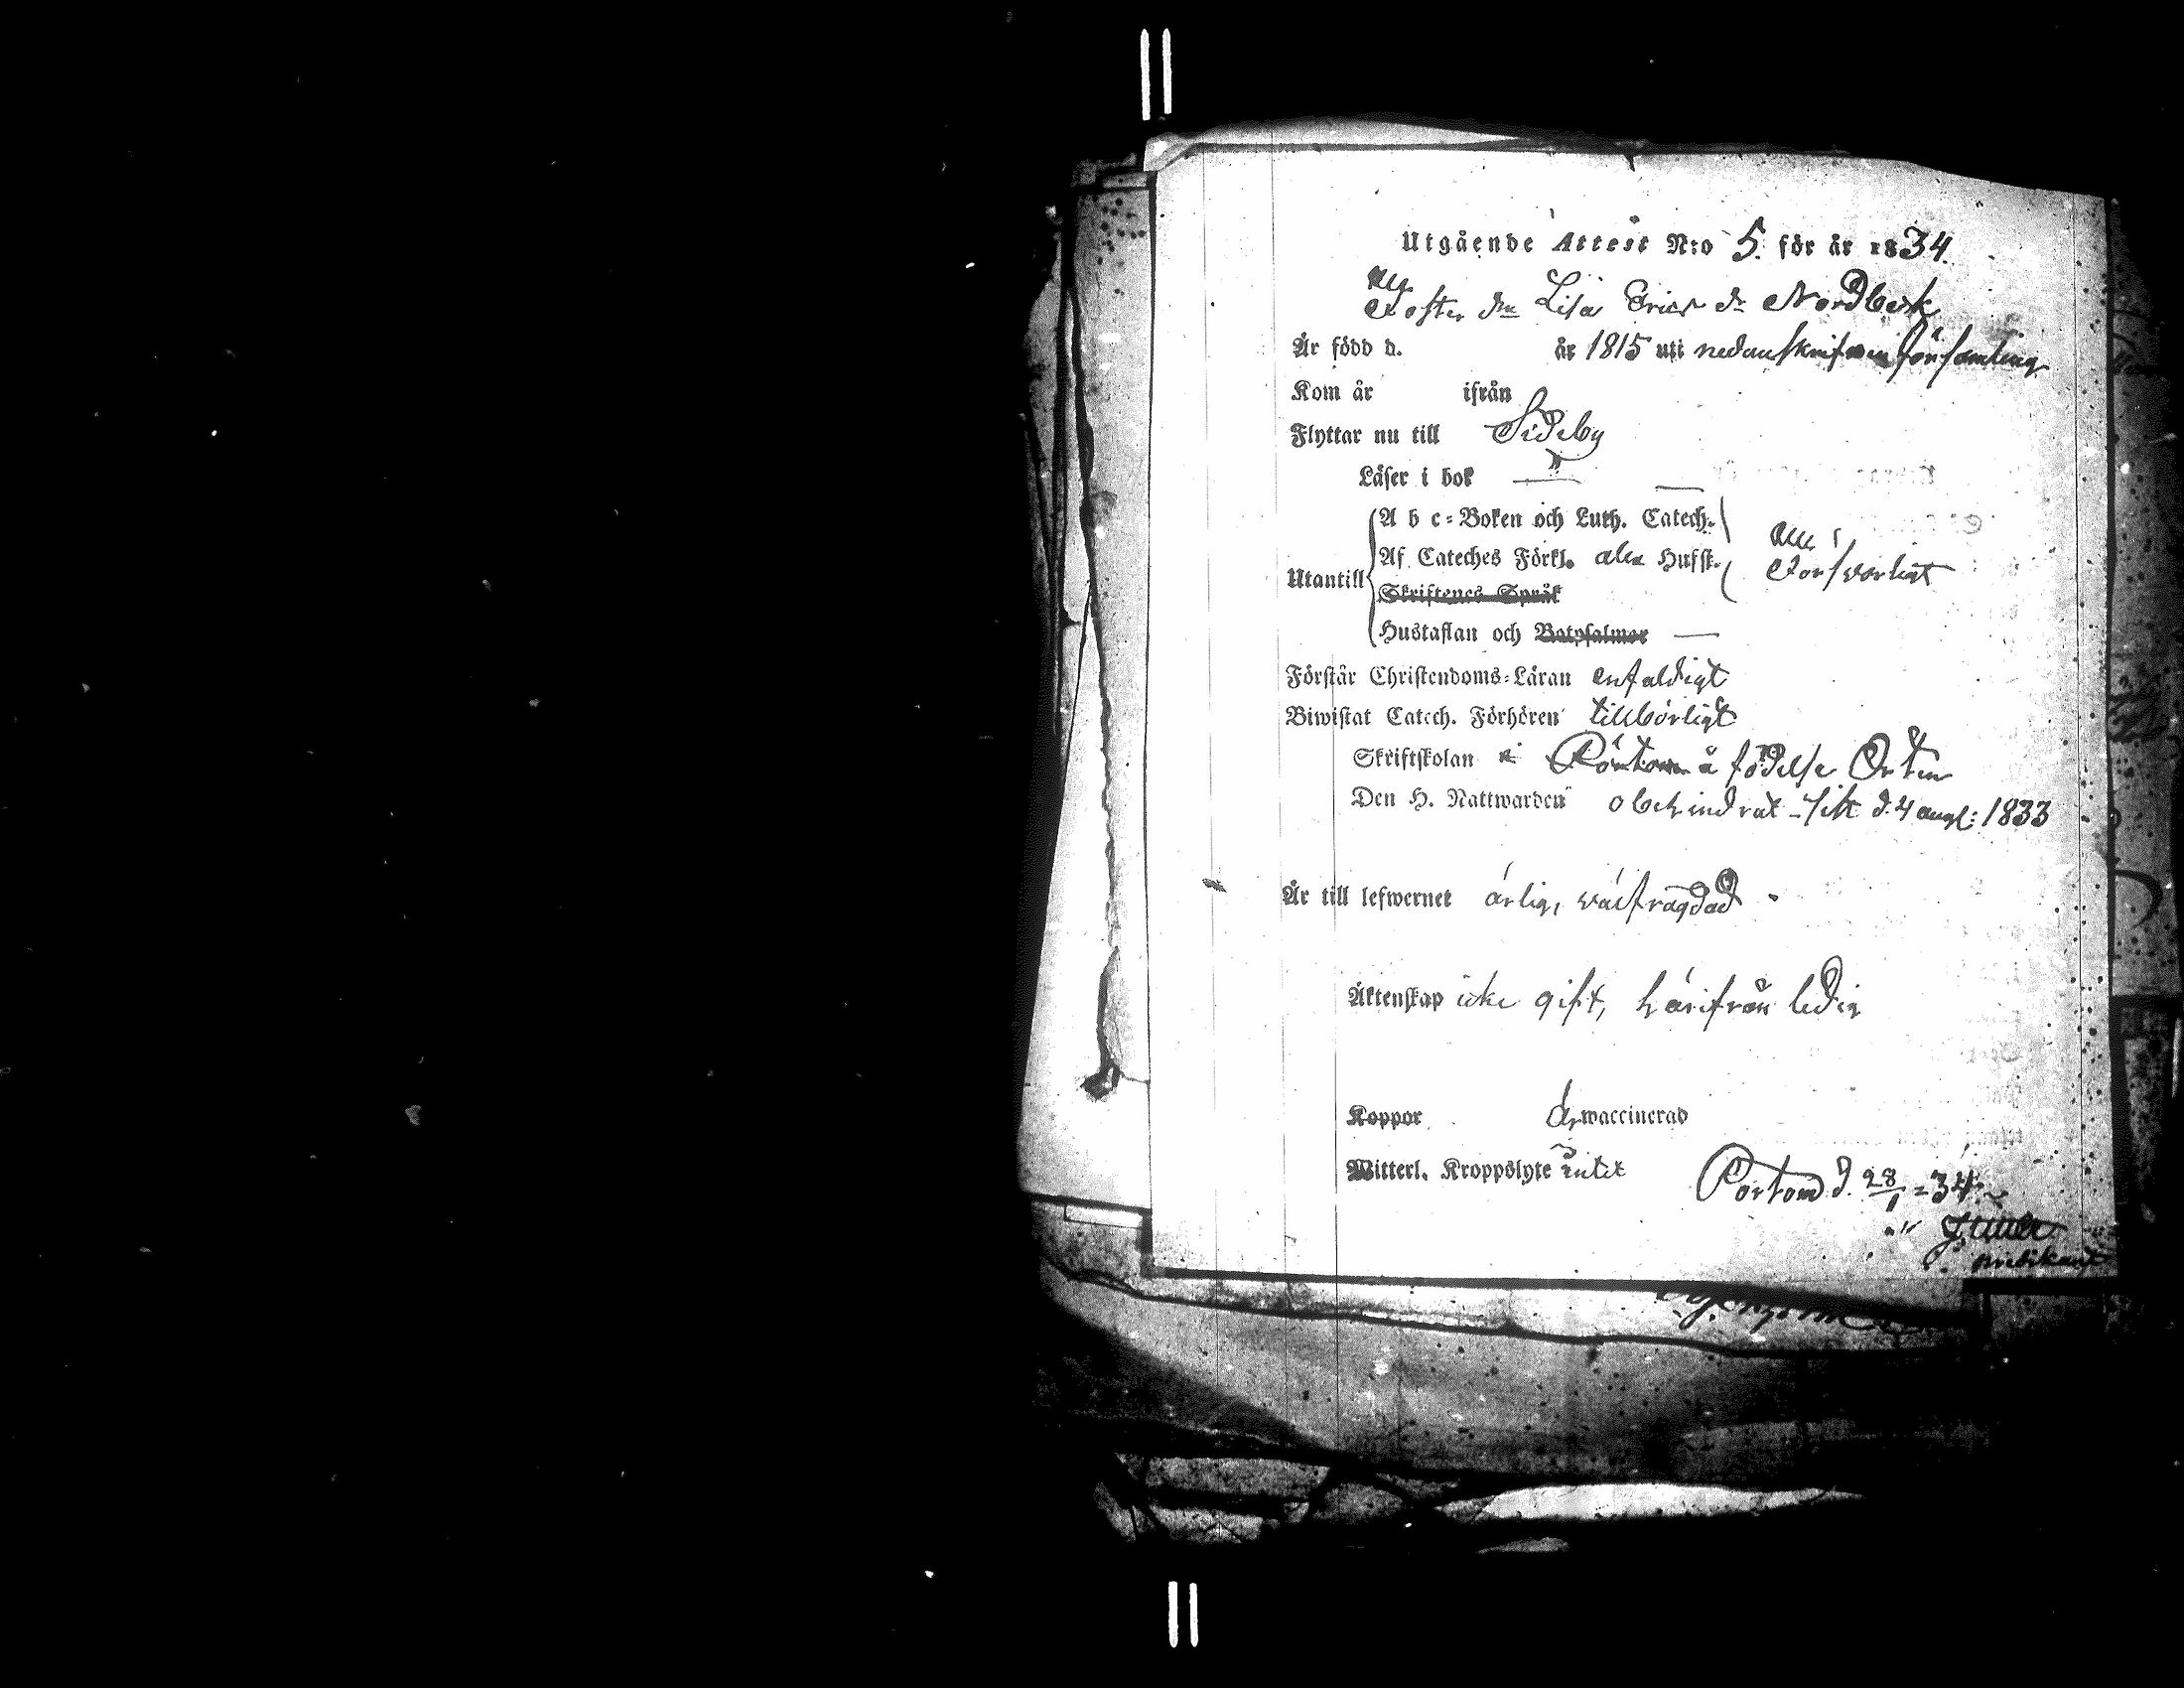 Utgående Attest N:o 5. för år 1834.
Foster dn Lisa Ericsd:r Nordbeck
Är född d. år 1815 uti nedanskrifwen församling
Kom år ifrån
Flyttar nu till Sideby
Läser i bok
A b c=Boken och Luth. Catech.
Af Cateches Förkl. Husfl.
Utantill försvarligt
Skriftenes Språk
Hustaflan och Botpsalmer
Förstår Christendoms=Läran enfaldigt
Biwistat Catech. Förhören tillbörligt
Skriftskolan i Pörtom å födelse Orten
Den H. Nattwarden obehindrat - sist d. 4 aug: 1833
Är till lefwernet ärlig, välfrägdad
Äktenskap icke gift, härifrån ledig
Koppor Är waccinerad
Witterl. Kroppslyte intet
Pörtom d. 28/1 = 34.
predikant